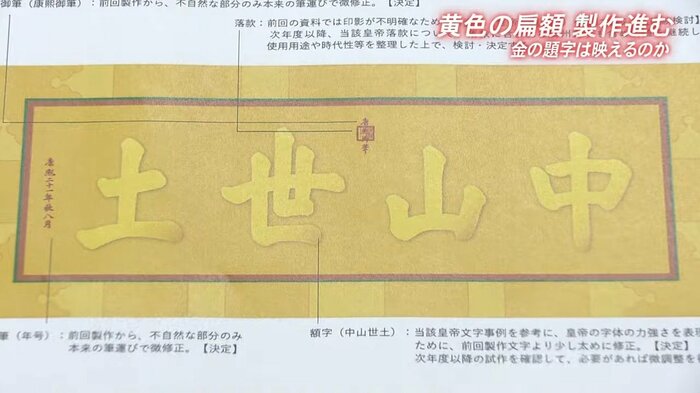 黄色の扁額 製作進む
金の題字は映えるのか
御筆（康熙御筆）：前回製作から、不自然な部分のみ本来の筆運びで微修正。【決定】
落款：前回の資料では印影が不明確なため
次年度以降、当該皇帝落款につい
使用用途や時代性等を整理した上で、検討・決定す
中山世土
康熙御筆
康熙二十一年秋八月
筆（年号）：前回製作から、不自然な部分のみ
本来の筆運びで微修正。【決定】
額字（中山世土）：当該皇帝文字事例を参考に、皇帝の字体の力強さを表現
ために、前回製作文字より少し太めに修正。【決定】
次年度以降の試作を確認して、必要があれば微調整を